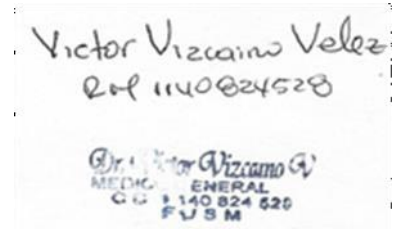 Victor Vizcaino Velez
RM 1140824528
Dr. Victor Vizcaino V
MEDICO GENERAL
C C 1 140 824 528
F U S M